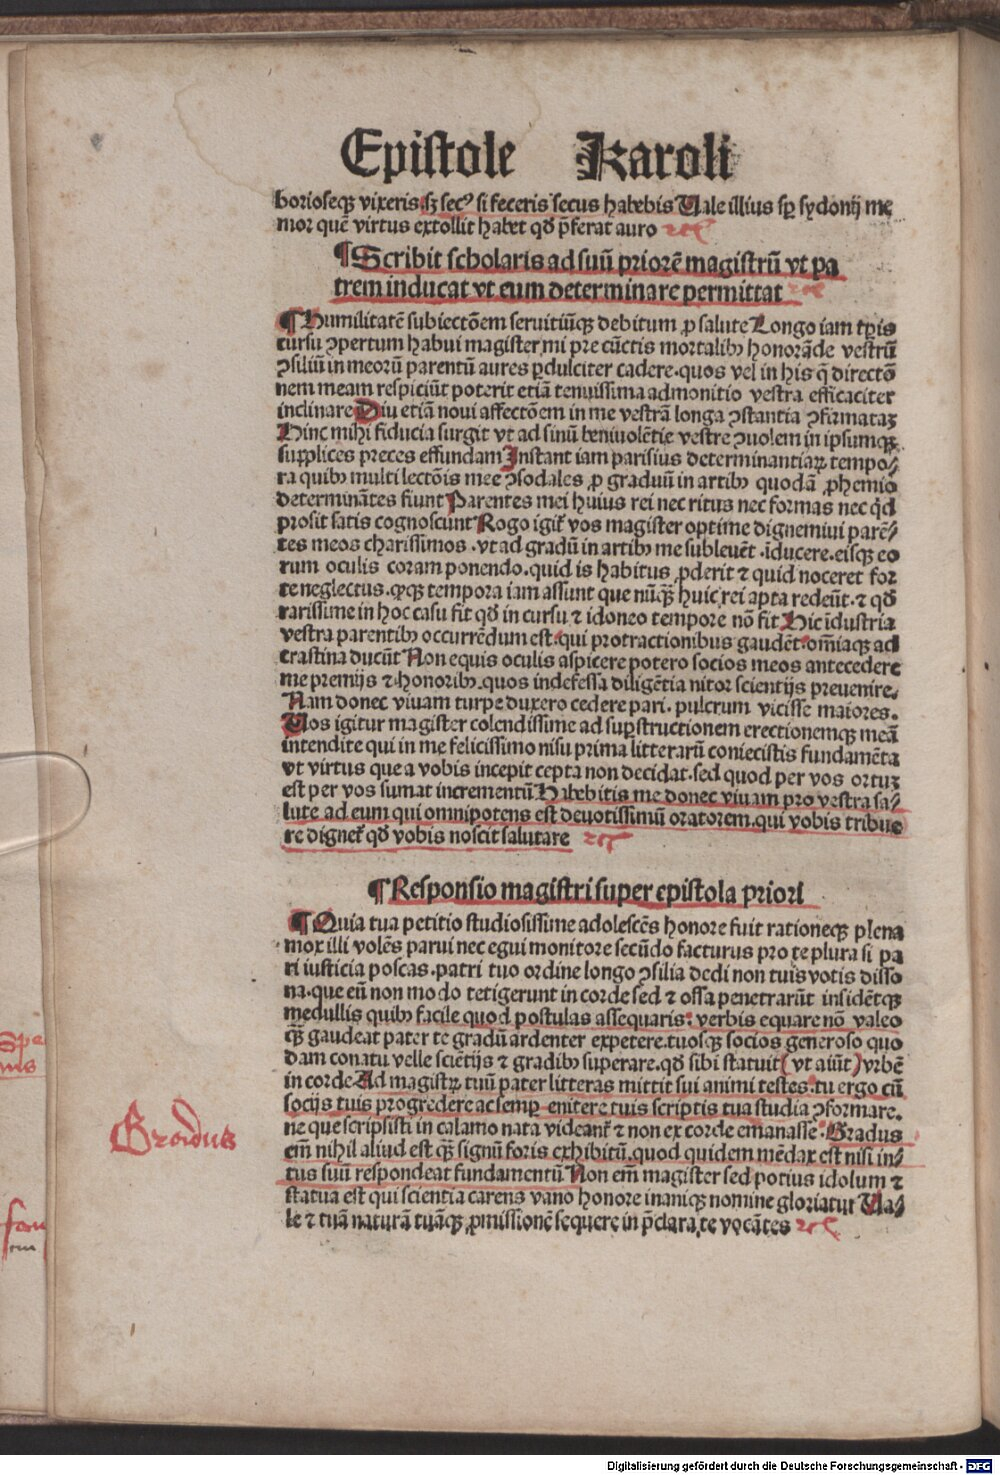 Epistole Karoli
borioseqꝫ vixeris sꝫ secꝰ si feceris secus habebis Uale illius sꝑ sydonij me
mor quē virtus extollit habet qđ p̄ferat auro
¶ Scribit scholaris ad suū priorē magistrū vt pa
trem inducat vt eum determinare permittat
¶ Humilitatē subiectōem seruitiūqꝫ debitum ꝓ salute Longo iam tꝑis
cursu ꝯpertum habui magister mi pre cūctis mortalibꝰ honorāde vestrū
ꝯsiliū in meorū parentū aures ꝑdulciter cadere. quos vel in his q̄ directō
nem meam respiciūt poterit etiā tenuissima admonitio vestra efficaciter
inclinare Diu etiā noui affectōem in me vestrā longa ꝯstantia ꝯfirmataꝫ
Hinc mihi fiducia surgit vt ad sinū beniuolētie vestre ꝯuolem in ipsumqꝫ
supplices preces effundam Instant iam parisius determinantiaꝝ tempo⸗
ra quibꝰ multi lectōis mee ꝯsodales ꝓ graduū in artibꝰ quodā ꝓhemio
determinātes fiunt Parentes mei huius rei nec ritus nec formas nec qđ
prosit satis cognoscunt Rogo igit᷑ vos magister optime dignemini parē⸗
tes meos charissimos. vt ad gradū in artibꝰ me subleuēt. īducere. eisqꝫ eo
rum oculis coram ponendo. quid is habitus ꝓderit ⁊ quid noceret for
te neglectus. qꝫqꝫ tempora iam assunt que nūqꝫ huic rei apta redeūt. ⁊ qđ
rarissime in hoc casu fit qđ in cursu ⁊ idoneo tempore nō fit Hic īdustria
vestra parentibꝰ occurrēdum est. qui protractionibus gaudēt. om̄iaqꝫ ad
crastina ducūt Non equis oculis aspicere potero socios meos antecedere
me premijs ⁊ honoribꝰ. quos indefessa diligētia nitor scientijs preuenire.
Nam donec viuam turpe duxero cedere pari. pulcrum vicisse maiores.
Uos igitur magister colendissime ad suꝑstructionem erectionemqꝫ meā
intendite qui in me felicissimo nisu prima litterarū coniecistis fundamēta
vt virtus que a vobis incepit cepta non decidat. sed quod per vos ortuꝫ
est per vos sumat incrementū Habebitis me donec viuam pro vestra sa⸗
lute ad eum qui omnipotens est deuotissimū oratorem. qui vobis tribue
re dignet᷑ qđ vobis noscit salutare
¶ Responsio magistri super epistola priori
¶ Quia tua petitio studiosissime adolescēs honore fuit rationeqꝫ plena
mox illi volēs parui nec egui monitore secūdo facturus pro te plura si pa
ri iusticia poscas. patri tuo ordine longo ꝯsilia dedi non tuis votis disso
na. que eū non modo tetigerunt in corde sed ⁊ ossa penetrarūt insidētqꝫ
medullis quibꝰ facile quod postulas assequaris: verbis equare nō valeo
qꝫ gaudeat pater te gradū ardenter expetere. tuosqꝫ socios generoso quo
dam conatu velle sciētijs ⁊ gradibꝰ superare. qđ sibi statuit (vt aiūt) vrbē
in corde. Ad magistꝝ tuū pater litteras mittit sui animi testes. tu ergo cū
socijs tuis progredere ac semꝑ enitere tuis scriptis tua studia ꝯformare.
ne que scripsisti in calamo nata videant᷑ ⁊ non ex corde emanasse. Gradus
em̄ nihil aliud est qꝫ signū foris exhibitū. quod quidem mēdax est nisi in⸗
tus suū respondeat fundamentū Non em̄ magister sed potius idolum ⁊
statua est qui scientia carens vano honore inaniqꝫ nomine gloriatur Ua⸗
le ⁊ tuā naturā tuāqꝫ ꝓmissionē sequere in p̄clara te vocātes
Gradus